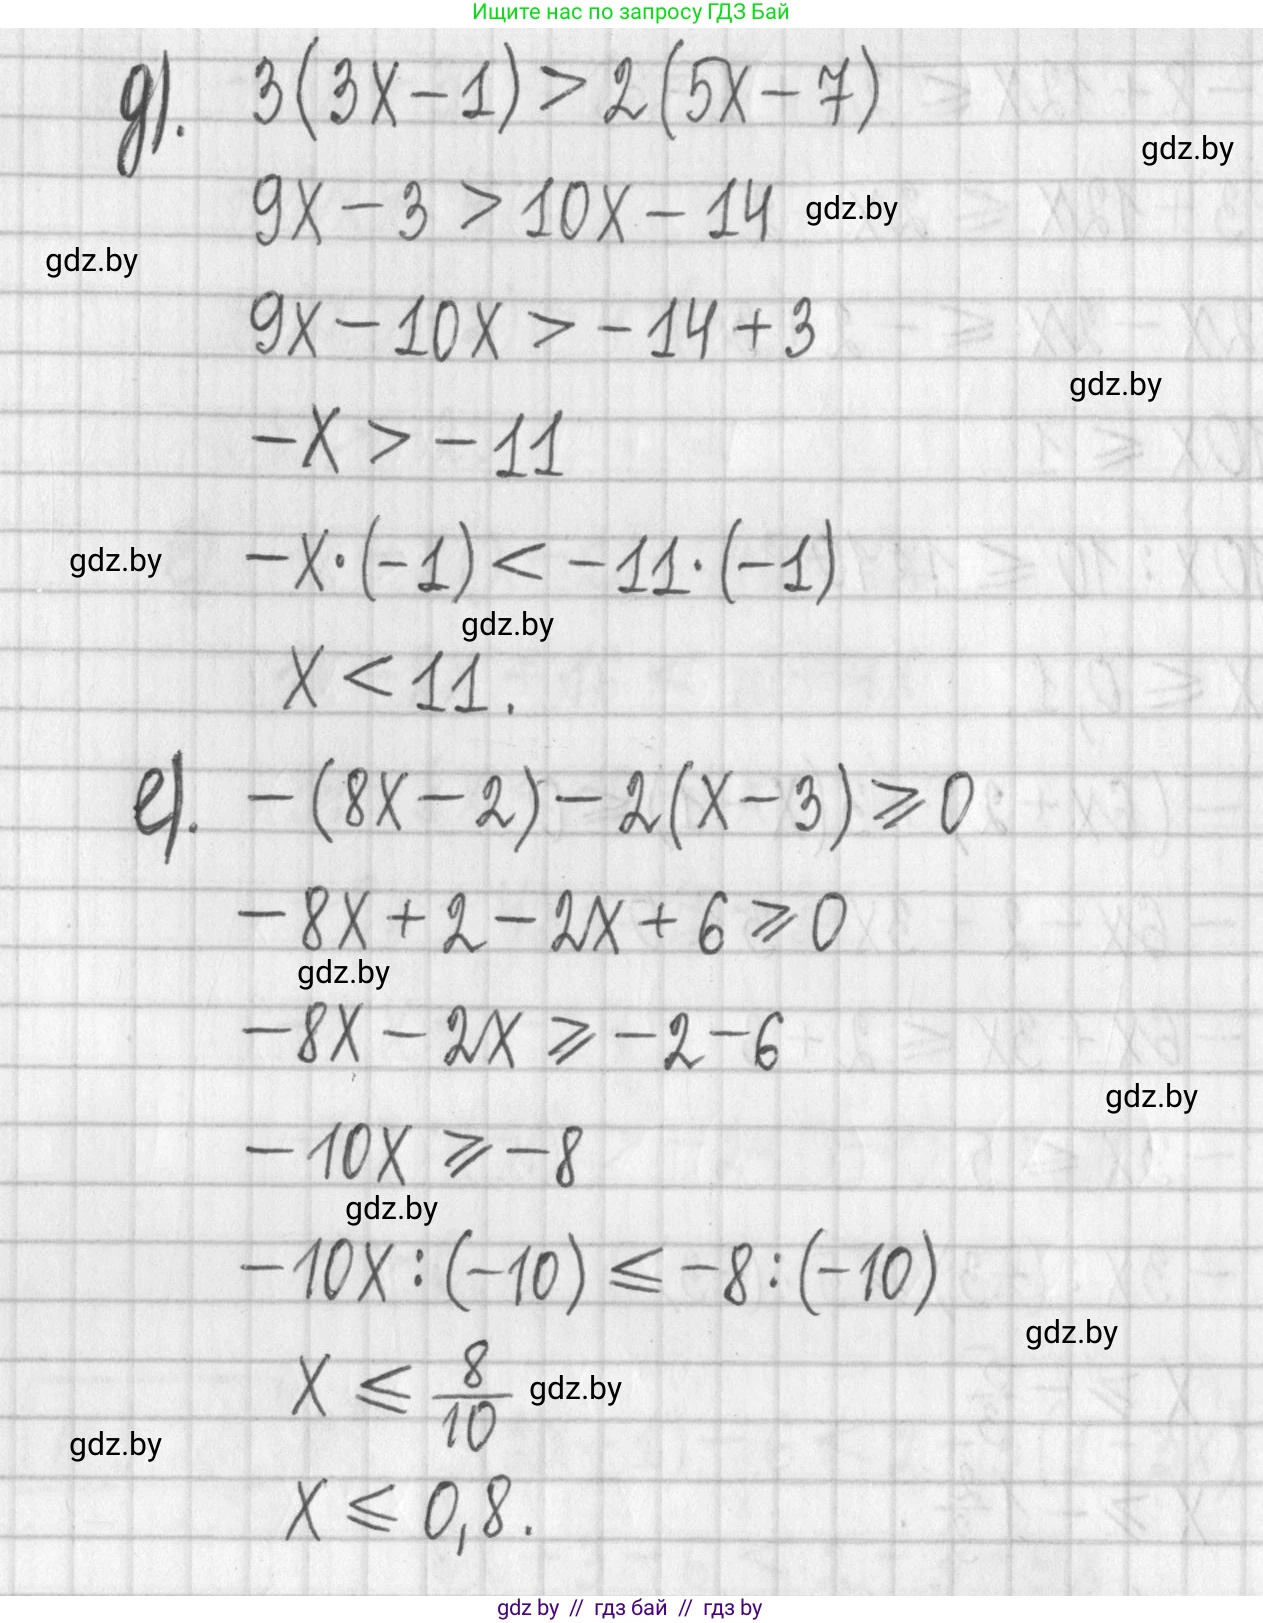 Ищите нас по запросу ГДЗ Бай
д). 3(3x-1)>2(5x-7)
gdz.by
9x-3>10x-14 gdz.by
gdz.by
9x-10x>-14+3
gdz.by
-x>-11
gdz.by -x·(-1)<-11·(-1)
gdz.by
x<11.
е). -(8x-2)-2(x-3)⩾0
-8x+2-2x+6⩾0
gdz.by
-8x-2x⩾-2-6
gdz.by
-10x⩾-8
gdz.by
-10x:(-10)⩽-8:(-10)
gdz.by
x⩽8/10 gdz.by
gdz.by
x⩽0,8.
gdz by // гдз бай // гдз by